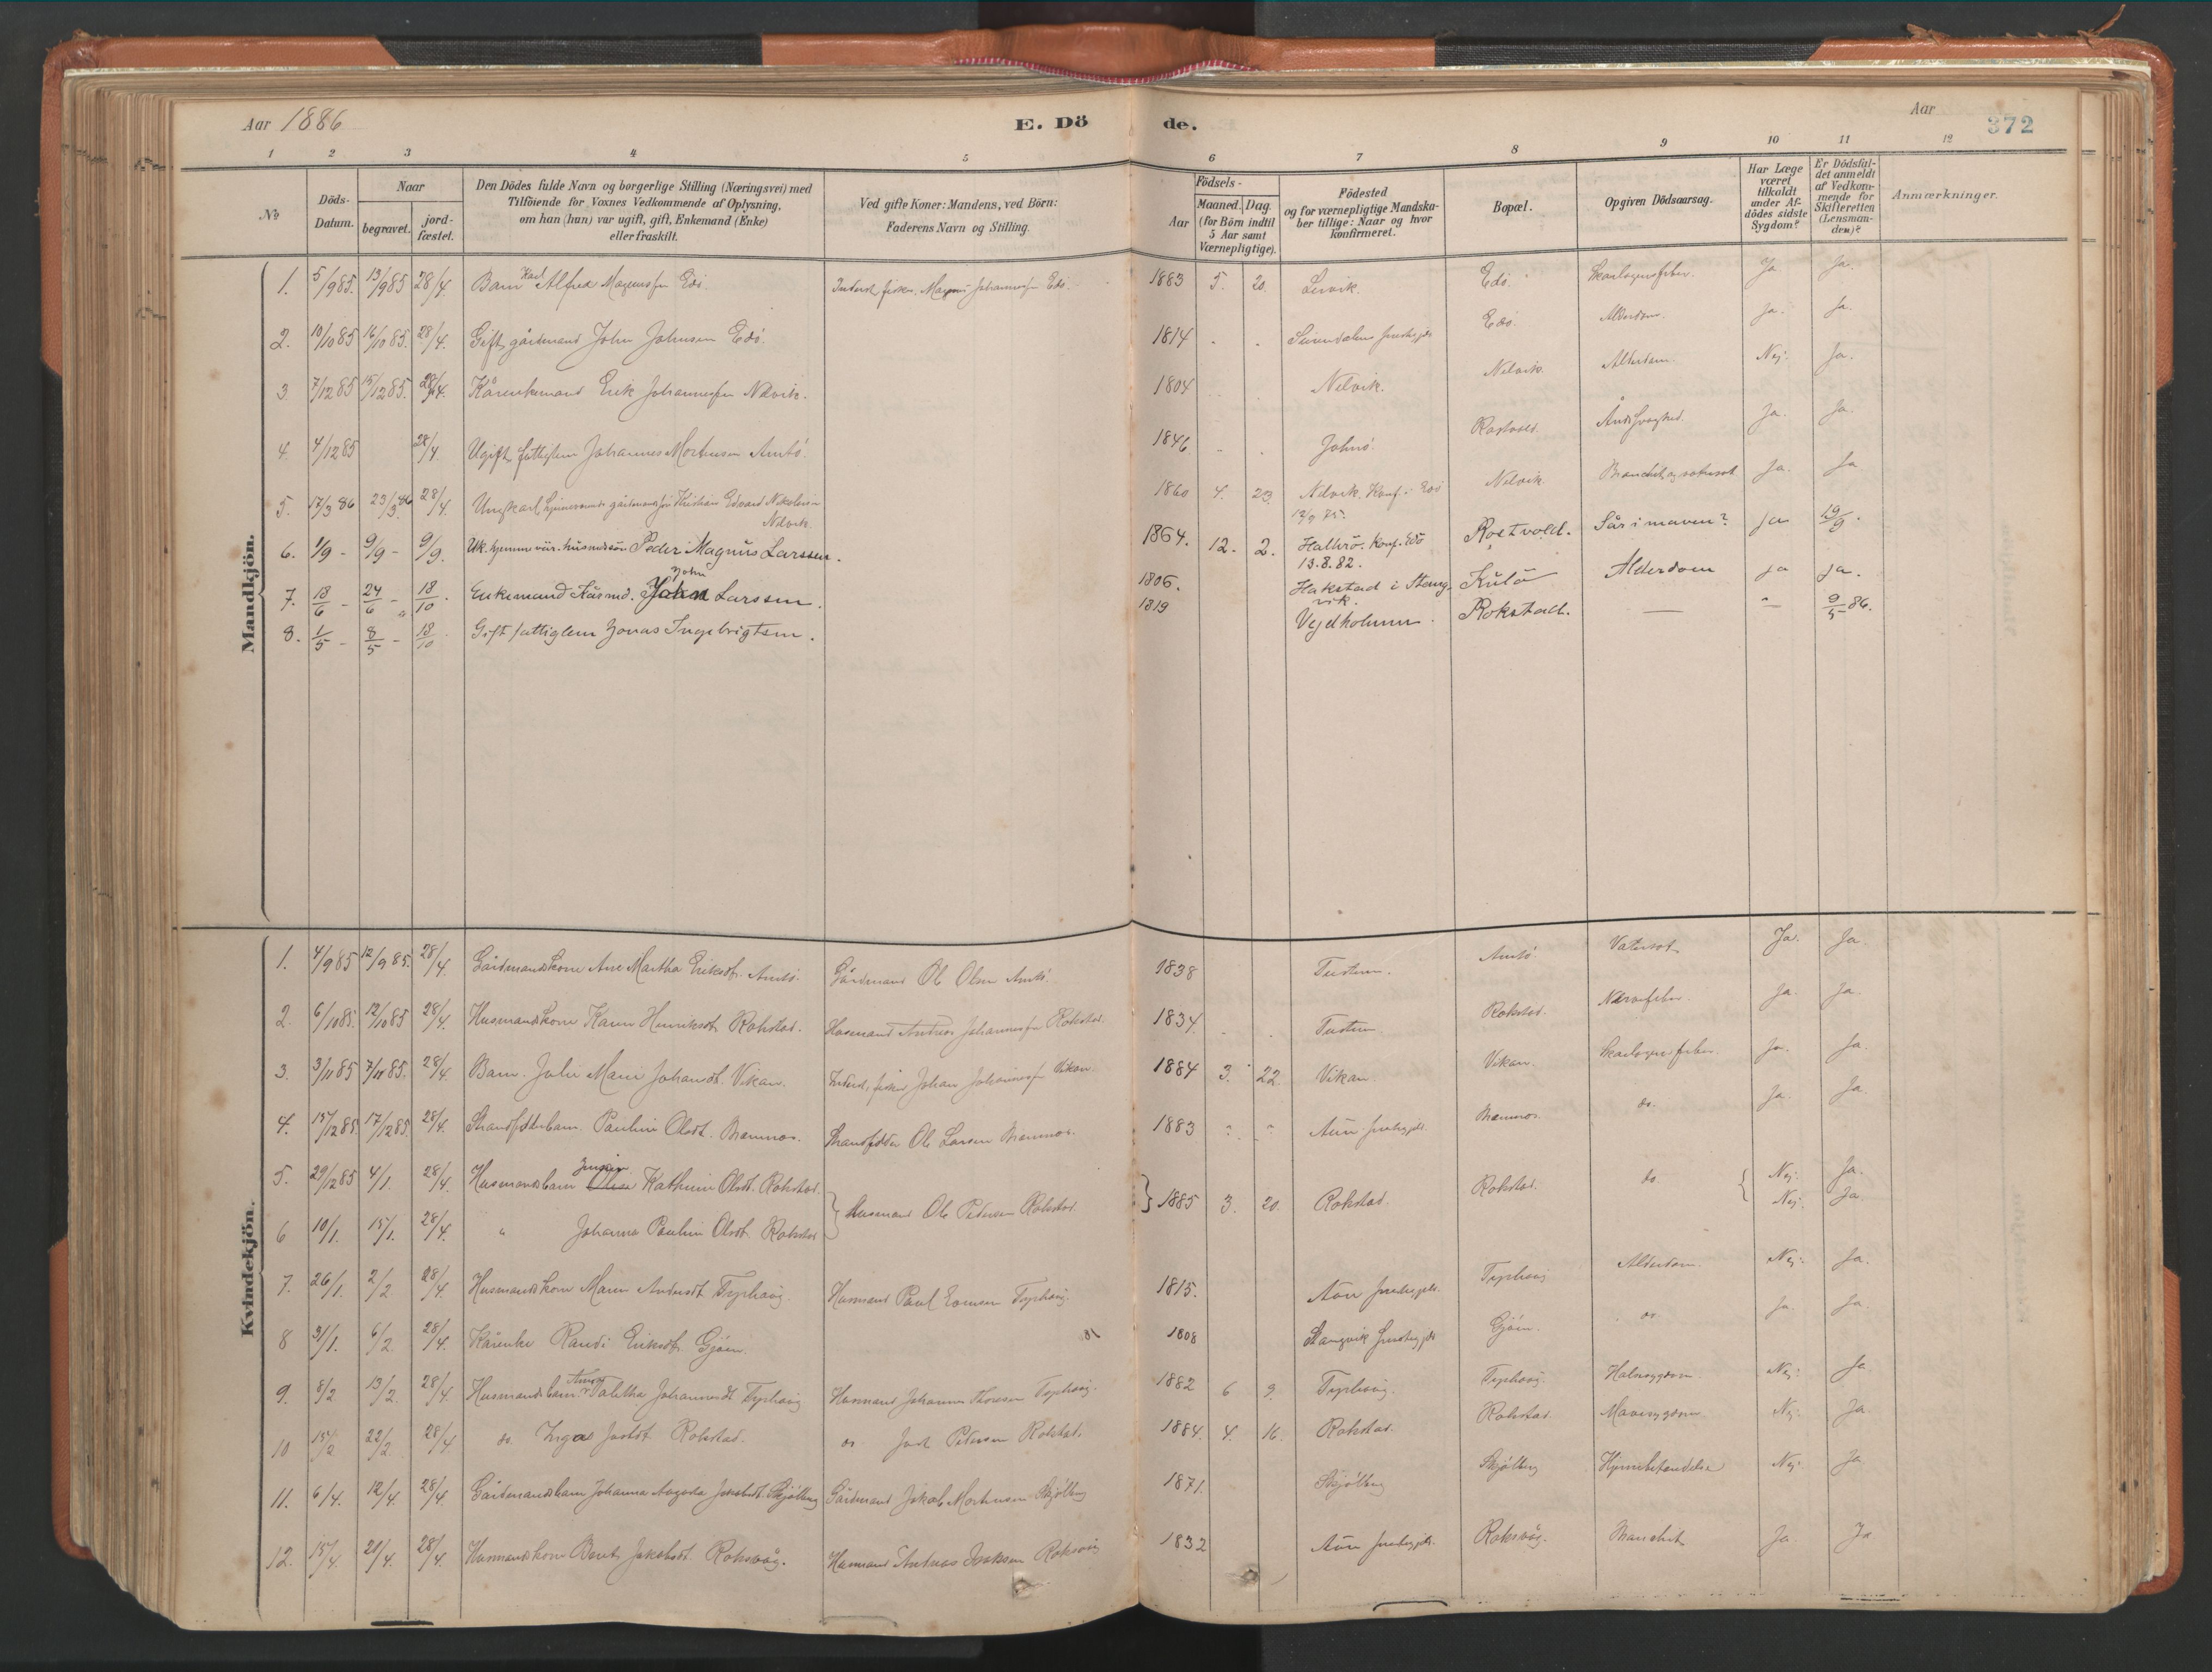 Aar 1886
E. Dö
de.
Aar
372
1 2 3 4 5 6 7 8 9 10 11 12
№
Döds-
Datum.
Naar
begravet.
jord-
fæstet.
Den Dödes fulde Navn og borgerlige Stilling (Næringsvei) med
Tilföiende for Voxnes Vedkommende af Oplysning,
om han (hun) var ugift, gift, Enkemand (Enke)
eller fraskilt.
Ved gifte Koner: Mandens, ved Börn:
Faderens Navn og Stilling.
Födsels-
Aar
Maaned. Dag.
(for Börn indtil
5 Aar samt
Værnepligtige).
Födested
og for værnepligtige Mandska-
ber tillige: Naar og hvor
konfirmeret.
Bopæl.
Opgiven Dödsaarsag.
Har Læge
været
tilkaldt
under Af-
dödes sidste
Sygdom?
Er Dödsfal-
det anmeldt
af Vedkom-
mende for
Skifteretten
(Lensman-
den)?
Anmærkninger.
Mandkjön.
1. 5/9 85. 13/9 85 28/4. Barn Karl Alfred Magnussen Edö. fisker Johannessen Edö. 1883 5. 20. Leivik. Edö. Skarlagensfeber. Ja Ja.
2. 10/10 85 16/10 85. 28/4. Gift gårdmand John Johnsen Edö. 1814 Edö. Alderdom. Ja. Ja.
3. 7/12 85 15/12 85. 28/4. Kårenkemand Erik Johannessen Nelvik. 1804 Nelvik. Nelvik. Alderdom. Nej. Ja.
4. 4/12 85 28/4. Ugift fattiglem Johannes Mortensen Amtö. 1846 Ja. Ja.
5. 17/3 86 23/3 86 28/4. Ungkarl, hjemmeværende gårdmandssön Kristian Edvard Nikolaisen
Nelvik. 1860 4. 23. Nelvik. Konf. i Edö Nelvik. Ja. Ja
6. 1/9 - 9/9 - 9/9. Uk. hjemmevær. husmdssön Peder Magnus Larssen. 1864. 12. 2. Halbrö. Konf. Edö
13.8.82. Rostvold. Sår i maven? ja 19/9.
7. 18/6 - 24/6 - 18/10. Enkemand Kårmd. John John Larssen. 1806. Hakstad i Stang-
vik. Kulö Alderdom ja ja.
8. 1/5 - 8/5 - 18/10 Gift fattiglem Jonas Ingebrigtsen. 1819 Vejdholmen. Rokstad. — " — 9/5 86.
Kvindekjön.
1. 4/9 85 12/9 85. 28/4. Gårdmandskone Ane Martha Eriksdt. Amtö. Gårdmand Ole Olsen Amtö. 1838 Tustern. Amtö. Vatersot Ja. Ja
2. 6/10 85. 12/10 85 28/4. Husmandskone Karen Henriksdt Rokstad. Husmand Andreas Johannessen Rokstad. 1834. Tustern Rokstad. Nervefeber. Ja. Ja.
3. 3/11 85 7/11 85. 28/4. Barn. Julie Marie Johansdt. Vikan. fisker Johan Johannessen Vikan. 1884 3. 22. Vikan. Vikan. Skarlagensfeber. Ja. Ja.
4. 15/12 85. 17/12 85. 28/4. Strandsidderbarn. Pauline Olsdt. Bremnes. Strandsidder Ole Larsen Bremnes. 1883 ? ? Aure præstegjeld. Bremnes. do. Ja. Ja.
5. 29/12 85 4/1. 28/4. Husmandsbarn Kathrine Olsdt. Rokstad. Husmand Ole Pedersen Rokstad. 1885 3. 20. Rokstad. Rokstad. do Nej. Ja.
6 10/1. 15/1. 28/4. " Johanna Pauline Olsdt Rokstad Nej. Ja.
7. 26/1. 2/2. 28/4. Husmandskone Maren Andersdt Typhaug. Husmand Paul Typhaug. 1815. Aure præstegjeld. Typhaug Alderdom. Nej. Ja.
8 31/1. 6/2. 28/4. Kårenke Randi Eriksdt. Gjöen. 1808 Stangvik præstegjeld Gjöen. do Ja. Ja.
9. 8/2 13/2. 28/4. Husmandsbarn Anna Talitha Johannesdt Typhaug Husmand Johannes Typhaug. 1882 6 9. Typhaug. Typhaug. Halssygdom. Nej. Ja.
10 15/2 22/2. 28/4. do. Inga Rokstad. do Pedersen Rokstad. 1884. 4. 16. Rokstad. Rokstad Mavesygdom. Nej. Ja.
11. 6/4. 12/4. 28/4. Gårdmandsbarn Johanna Augusta Jakobsdt. Skjölberg Gårdmand Jakob Mortensen Skjölberg 1871. Skjölberg Skjölberg Hjernebetændelse Nej. Ja
12. 15/4. 21/4. 28/4. Husmandskone Berit Jakobsdt. Roksvåg. Husmand Andreas Isaksen Roksvåg 1832 Aure præstegjeld. Roksvåg. Bronchit Ja Ja